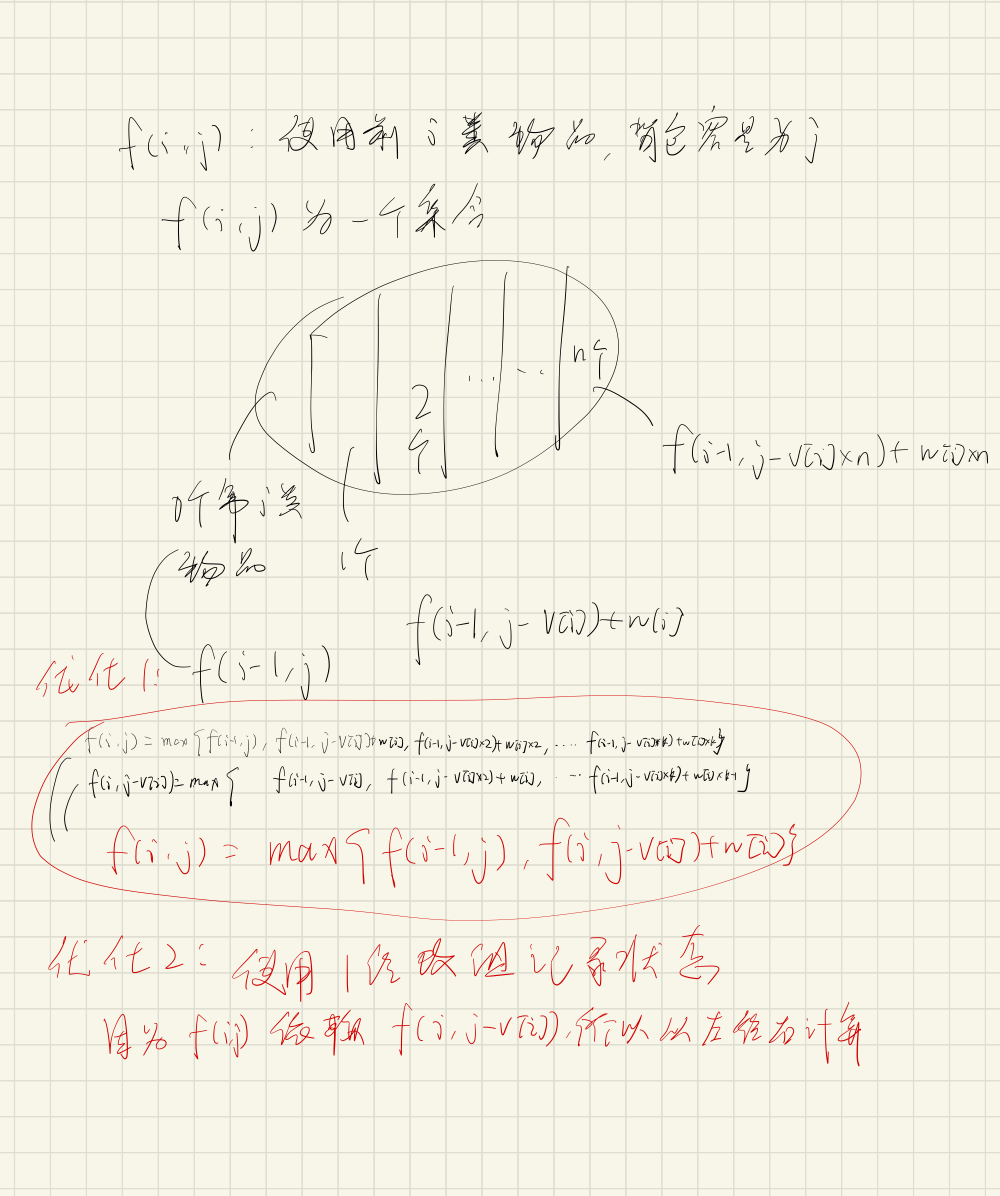 f(i,j)：使用前i类物品,背包容量为j
f(i,j)为一个集合
n个
2个
...
f(i-1,j-v[i]×n)+w[i]×n
0个第i类物品
1个
f(i-1,j-v[i])+w[i]
f(i-1,j)
优化1:
f(i,j)=max{f(i-1,j), f(i-1,j-v[i])+w[i], f(i-1,j-v[i]×2)+w[i]×2, .... f(i-1,j-v[i]×k)+w[i]×k}
f(i,j-v[i])=max{ f(i-1,j-v[i], f(i-1,j-v[i]×2)+w[i], ... f(i-1,j-v[i]×k)+w[i]×k-1}
f(i,j)= max{f(i-1,j), f(i,j-v[i])+w[i]}
优化2: 使用1维数组记录状态
因为f(ij)依赖f(i,j-v[i]),所以从左往右计算